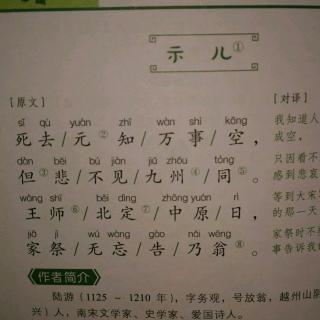 示儿①
［原文］
［对译］
sǐ qù yuán zhī wàn shì kōng
死去/元②知/万事/空，
我知道人
成空，
dàn bēi bú jiàn jiǔ zhōu tóng
但③悲/不见/九州④/同⑤。
只因看不
感到悲哀
wáng shī běi dìng zhōng yuán rì
王师⑥/北定⑦/中原/日，
等到大宋
的那一天
jiā jì wú wàng gào nǎi wēng
家祭/无忘/告/乃翁⑧。
家祭时不
事告诉我
作者简介
陆游（1125 － 1210 年），字务观，号放翁，越州山阴
兴）人，南宋文学家、史学家、爱国诗人。